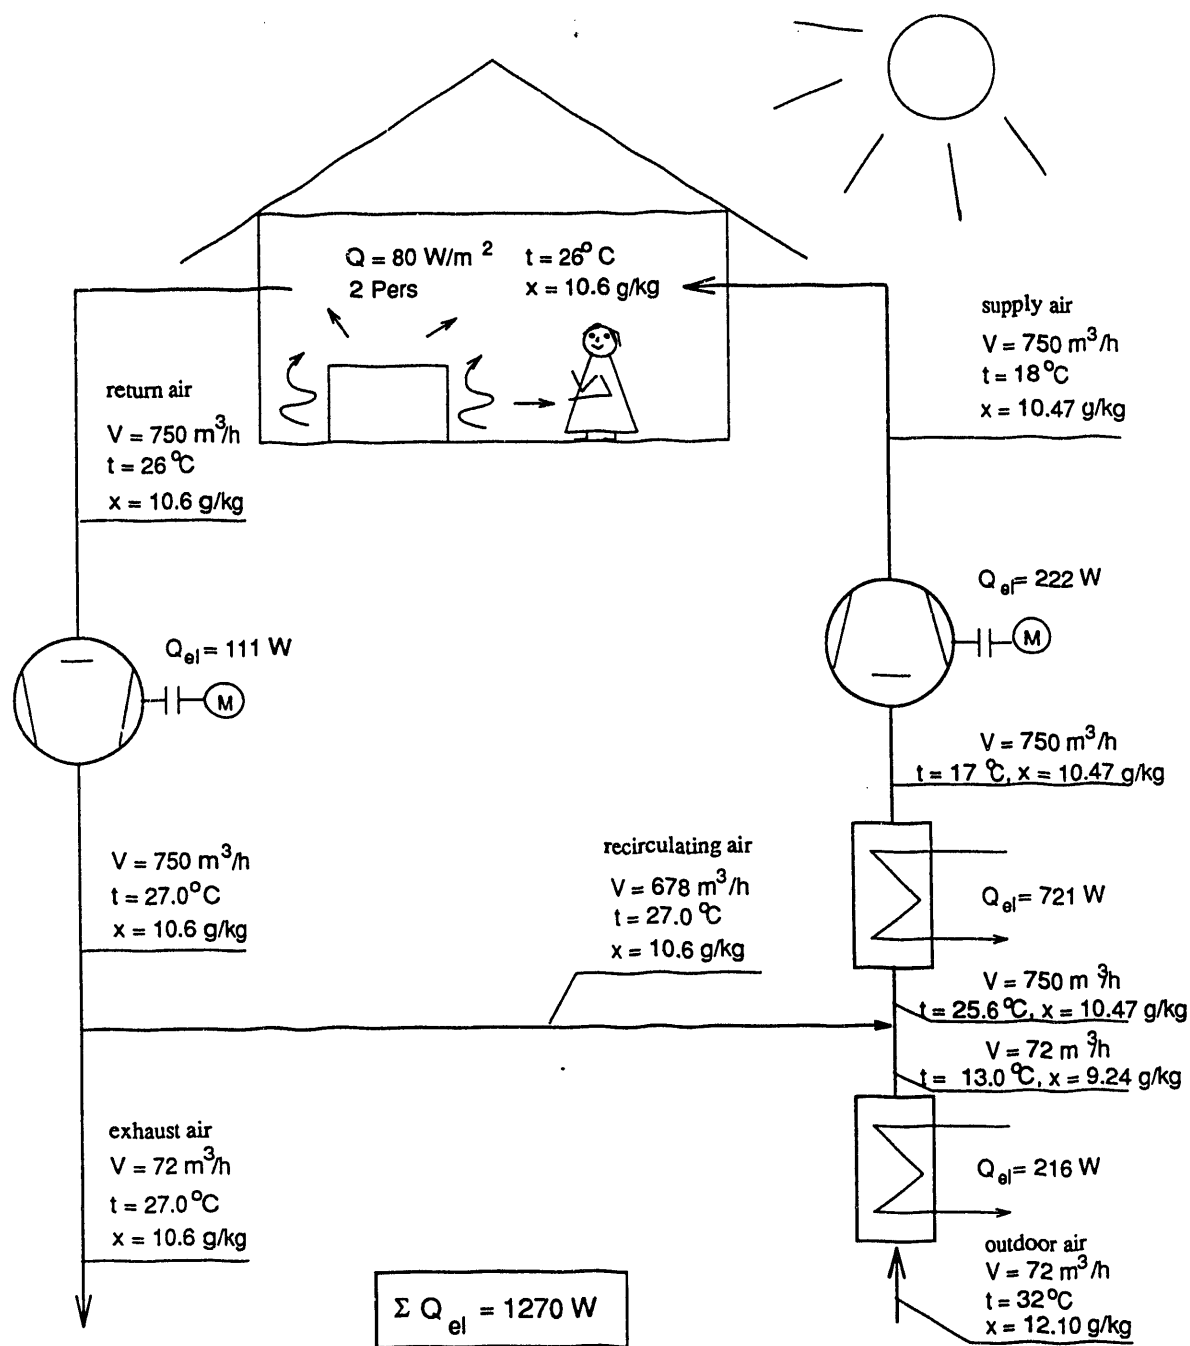 Q = 80 W/m²   t = 26°C
2 Pers   x = 10.6 g/kg
supply air
V = 750 m³/h
t = 18°C
x = 10.47 g/kg
return air
V = 750 m³/h
t = 26°C
x = 10.6 g/kg
Q el = 222 W
M
Q el = 111 W
M
V = 750 m³/h
t = 17 °C, x = 10.47 g/kg
V = 750 m³/h
t = 27.0°C
x = 10.6 g/kg
recirculating air
V = 678 m³/h
t = 27.0 °C
x = 10.6 g/kg
Q el = 721 W
V = 750 m³/h
t = 25.6 °C, x = 10.47 g/kg
V = 72 m³/h
t = 13.0 °C, x = 9.24 g/kg
exhaust air
V = 72 m³/h
t = 27.0°C
x = 10.6 g/kg
Q el = 216 W
outdoor air
V = 72 m³/h
t = 32°C
x = 12.10 g/kg
Σ Q el = 1270 W